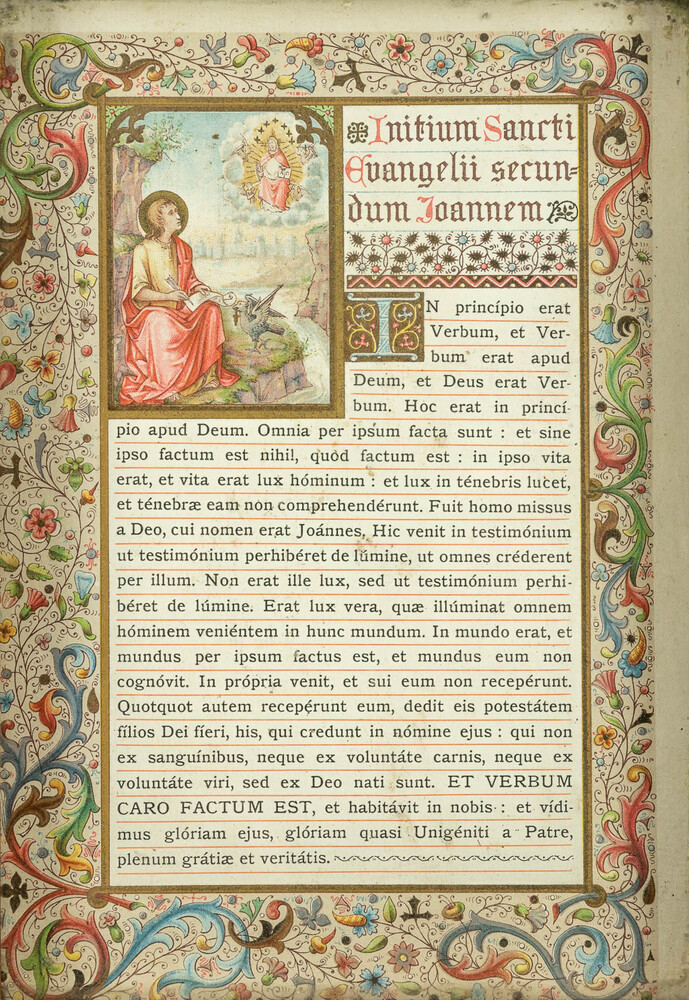 Initium Sancti
Evangelii secun=
dum Joannem
IN princípio erat
Verbum, et Ver-
bum erat apud
Deum, et Deus erat Ver-
bum. Hoc erat in princí-
pio apud Deum. Omnia per ipsum facta sunt : et sine
ipso factum est nihil, quod factum est : in ipso vita
erat, et vita erat lux hóminum : et lux in ténebris lucet,
et ténebræ eam non comprehendérunt. Fuit homo missus
a Deo, cui nomen erat Joánnes. Hic venit in testimónium
ut testimónium perhibéret de lúmine, ut omnes créderent
per illum. Non erat ille lux, sed ut testimónium perhi-
béret de lúmine. Erat lux vera, quæ illúminat omnem
hóminem veniéntem in hunc mundum. In mundo erat, et
mundus per ipsum factus est, et mundus eum non
cognóvit. In própria venit, et sui eum non recepérunt.
Quotquot autem recepérunt eum, dedit eis potestátem
fílios Dei fíeri, his, qui credunt in nómine ejus : qui non
ex sanguínibus, neque ex voluntáte carnis, neque ex
voluntáte viri, sed ex Deo nati sunt. ET VERBUM
CARO FACTUM EST, et habitávit in nobis : et vídi-
mus glóriam ejus, glóriam quasi Unigéniti a Patre,
plenum grátiæ et veritátis.